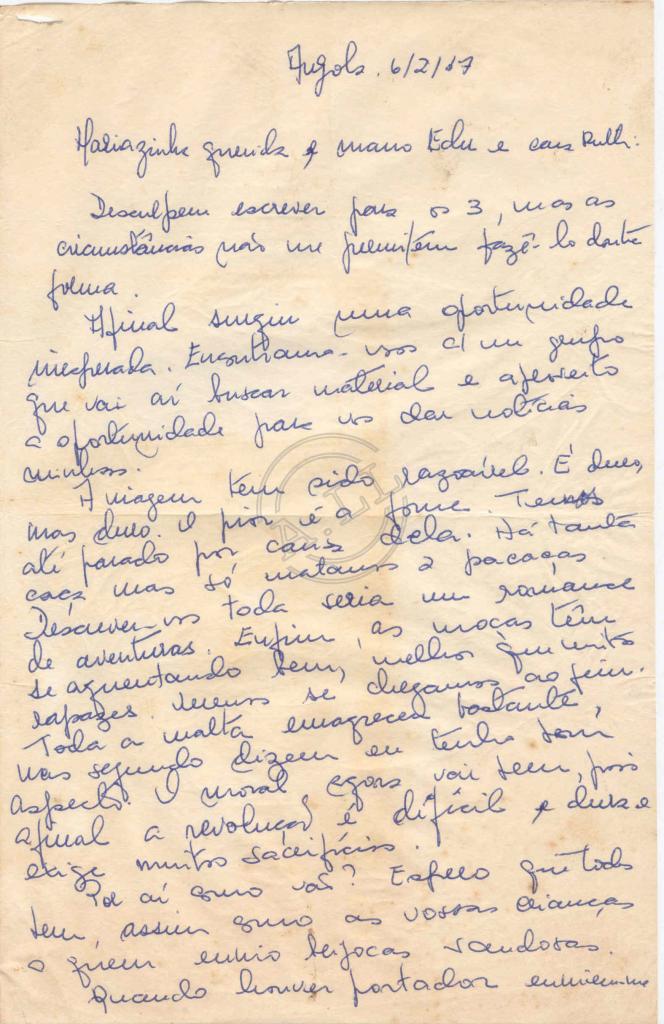 Angola, 6/2/67
Mariazinha querida e mano Edu e cara Ruth:
Desculpem escrever para os 3, mas as
circunstâncias não me permitem fazê-lo doutra
forma.
Afinal surgiu uma oportunidade
inesperada. Encontramo-nos c/ um grupo
que vai aí buscar material e aproveito
a oportunidade para vos dar notícias
minhas.
A viagem tem sido razoável. É duro,
mas duro. O pior é a fome. Temos
até parado por causa dela. Há tanta
caça mas só matamos 2 pacaças.
Descrever-vos toda seria um romance
de aventuras. Enfim, as moças têm
se aguentando bem, melhor que muitos
rapazes. Veremos se chegamos ao fim.
Toda a malta emagreceu bastante,
mas segundo dizem eu tenho bom
aspecto. O moral agora vai bem, pois
afinal a revolução é difícil e dura e
exige muitos sacrifícios.
Por aí como vão? Espero que todos
bem, assim como as vossas crianças
a quem envio beijocas saudosas.
Quando houver portador enviem-me
A.LL